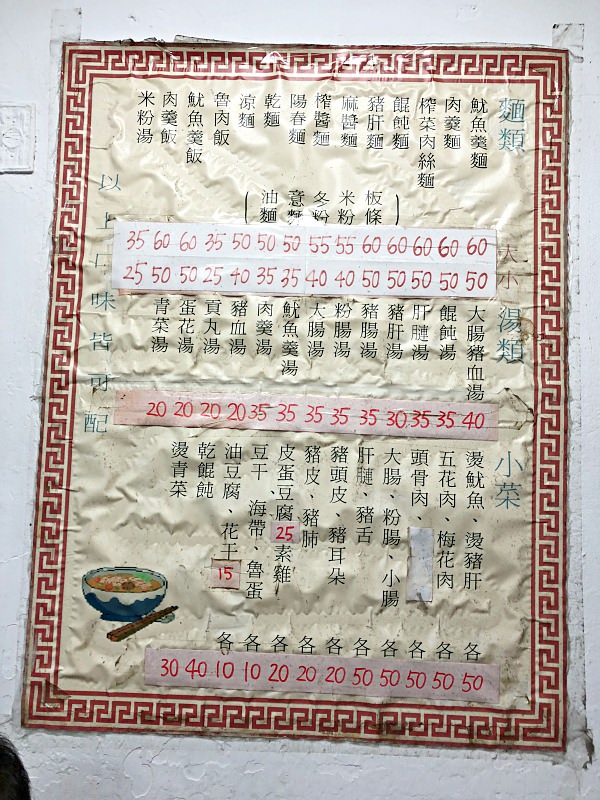 麵類
魷魚羹麵
肉羹麵
榨菜肉絲麵
餛飩麵
豬肝麵
麻醬麵
榨醬麵
陽春麵
乾麵
涼麵
魯肉飯
魷魚羹飯
肉羹飯
米粉湯
(板條
米粉
冬粉
意麵
油麵)
大
35 60 60 35 50 50 50 55 55 60 60 60 60 60
小
25 50 50 25 40 35 35 40 40 50 50 50 50 50
湯類
大腸豬血湯
餛飩湯
肝膶湯
豬肝湯
豬腸湯
粉腸湯
大腸湯
魷魚羹湯
肉羹湯
豬血湯
貢丸湯
蛋花湯
青菜湯
20 20 20 20 35 35 35 35 35 30 35 35 40
小菜
燙魷魚、燙豬肝 各
五花肉、梅花肉 各
頭骨肉、 各
大腸、粉腸、小腸 各
肝膶、豬舌 各
豬頭皮、豬耳朵 各
豬皮、豬肺 各
皮蛋豆腐25素雞 各
豆干、海帶、魯蛋 各
油豆腐、花干15 各
乾餛飩
燙青菜
30 40 10 10 20 20 20 50 50 50 50 50
以上口味皆可配